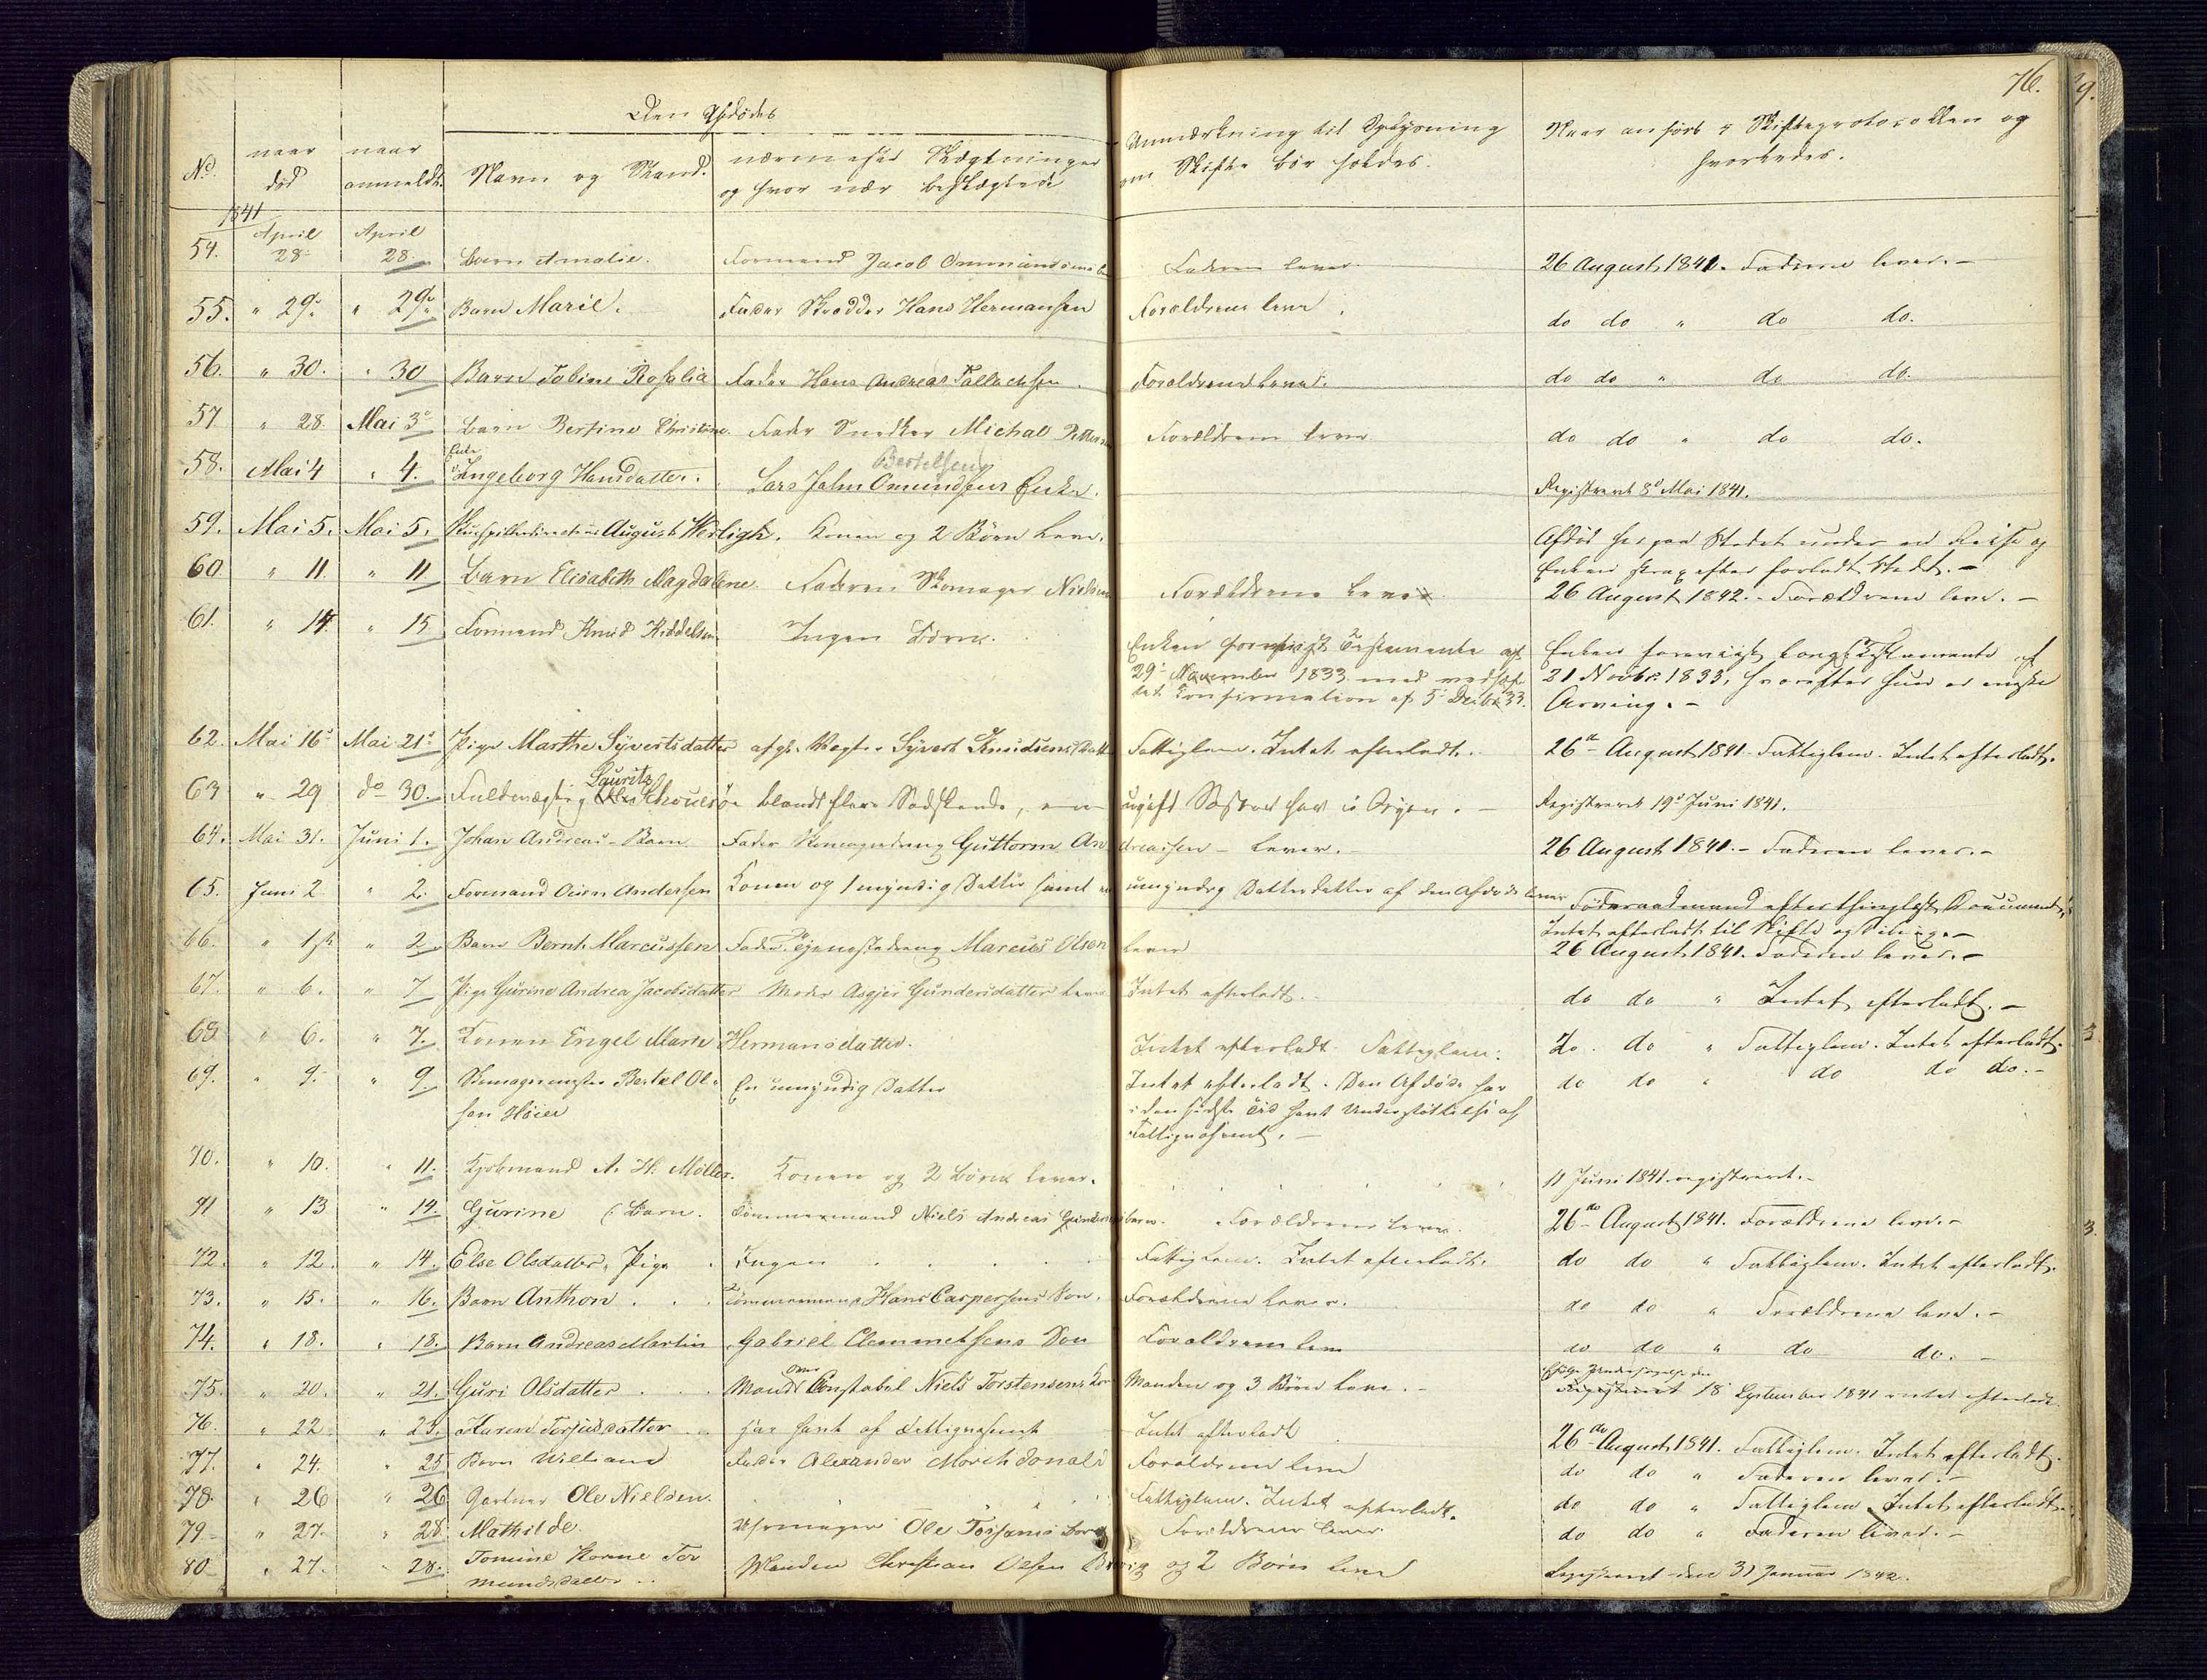 76.
Den Afdødes
No.
naar død
naar anmeldt.
Navn og Stand.
nærmeste Slægtninger og hvor nær beslægtede
Anmærkning til Oplysning om Skifte bør holdes.
Naar anført i Skifteprotocollen og hvorledes.
1841
April April
54. 28. 28. Barn Amalie. Formand Jacob Ommundsens Faderen lever. 26 August 1841. Faderen lever. –
55. " 29. " 29. Barn Marie. Fader Skrædder Hans Hermansen Forældrene leve. do do " do do.
56. " 30. " 30 Barn Tobine Rosalia Fader Hans Andreas Tallachsen. Forældrene leve. do do " do do.
57 " 28. Mai 3. Barn Bertine Christine. Fader Snedker Michal Forældrene leve. do do " do do.
Enke Bertelsen
58. Mai 4 " 4. Ingeborg Hansdatter. Lars Omundsens Enke. Registreret 8 Mai 1841.
59. Mai 5. Mai 5. August Werligh. Konen og 2 Børn leve. Afdød her paa Stedet under en Reise og
Enken strax efter forladt Stedet. –
60. " 11. " 11 Barn Elisabeth Magdalene. Faderen Skomager Forældrene leve. 26 August 1842. – Forældrene leve. –
61. " 14. " 15 Formand Knud Kiddelsen Ingen Børn. Enken Testamente af
29 November 1833 med
Confirmation af 5 33.
Enken Testamente af
21 Novbr. 1833, hvorefter hun er eneste
Arving. –
62. Mai 16 Mai 21 Pige Marthe Syvertsdatter Syvert Knudsens Fattiglem. Intet efterladt. 26 August 1841. Fattiglem. Intet efterladt.
Lauritz
63 " 29 do 30. Fuldmægtig blandt flere Sødskende, en ugift Søster her i Byen. – Registreret 19 Juni 1841.
64. Mai 31. Juni 1. Johan Andreas – Barn Fader Guttorm Andreassen – lever. – 26 August 1841. – Faderen lever. –
65. Juni 2 " 2. Formand Andersen Konen og 1 myndig Datter samt en umyndig Datterdatter af den Afdøde lever
efter thinglæst Document,
Intet efterladt til Skifte og Deling. –
66. " 1 " 2. Barn Bernt Marcussen Fader Marcus Olsen lever 26 August 1841. Faderen lever. –
67. " 6. " 7 Pige Gurine Andrea Jacobsdatter Moder Asgjer Gundersdatter Intet efterladt. – do do " Intet efterladt. –
68 " 6. " 7. Konen Engel Marie Hermansdatter. Intet efterladt. Fattiglem. do do " Fattiglem. Intet efterladt.
69. " 9. " 9. Skomagermester Bertel Olsen Høier En umyndig Datter Intet efterladt. Den Afdøde har
i den sidste Tid havt Understøttelse af
Fattigvæsenet. – do do " do do do. –
70. " 10. " 11. Kjøbmand A. H. Møller. Konen og 2 Børn lever. 11 Juni 1841 registreret. –
71 " 13 " 14. Gurine (Barn. Tømmermand Niels Andreas Forældrene lever. 26 August 1841. Forældrene lever. –
72. " 12. " 14. Else Olsdatter, Pige Ingen Fattiglem. Intet efterladt. do do " Fattiglem. Intet efterladt.
73. " 15. " 16. Barn Anthon Tømmermand Hans Caspersens Søn. Forældrene lever. do do " Forældrene leve. –
74. " 18. " 18. Barn Andreas Martin Gabriel Clemmetsens Søn Forældrene leve do do " do do. –
75. " 20. " 21. Guri Olsdatter Mand Over Constabel Niels Torstensens Manden og 3 Børn leve. – 18 September 1841 intet efterladt
76. " 22. " 23. Karen Torjusdatter har havt af Fattigvæsenet Intet efterladt 26 August 1841. Fattiglem. Intet efterladt.
77. " 24. " 25 Barn William Fader Alexander Forældrene leve do do " Faderen lever. –
78. " 26 " 26 Gartner Ole Nielsen. Fattiglem. Intet efterladt. do do " Fattiglem. Intet efterladt.
79. " 27. " 28 Mathilde. Uhrmager Ole Forældrene lever. do do " Faderen lever. –
80 " 27. " 28. Tomine Tormundsdatter Manden Christian Olsen og 2 Børn leve Registreret den 31 Januar 1842.